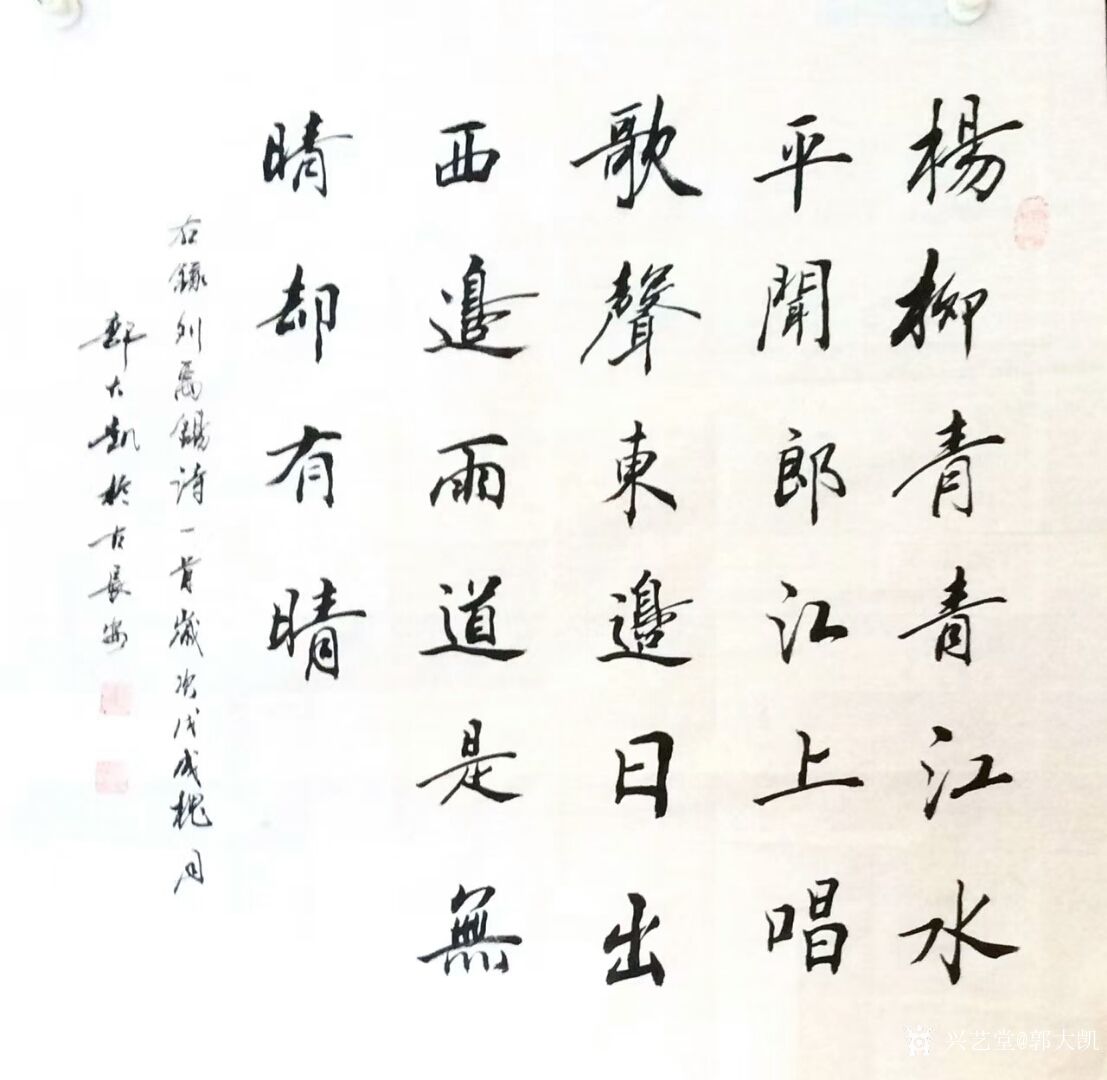 楊柳青青江水
平聞郎江上唱
歌聲東邉日出
西邉雨道是無
晴却有晴
右錄刘禹錫诗一首歲次戊戌槐月
郭大凯於古長安
兴艺堂@郭大凯